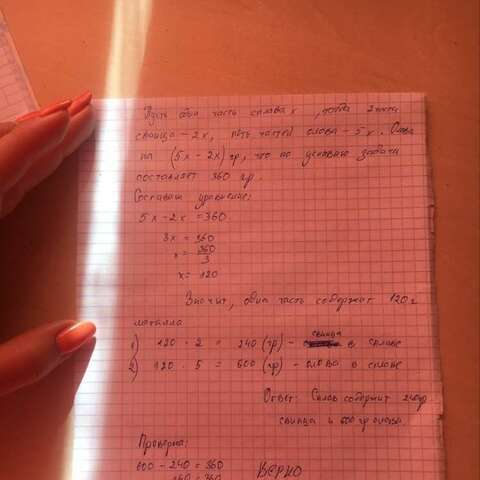 Пусть одна часть сплава x, тогда 2 части
свинца - 2x, пять частей олова - 5x. Олова
на (5x - 2x) гр, что по условию задачи
составляет 360 гр.
Составим уравнение:
5x - 2x = 360
3x = 360
x = 360/3
x = 120
Значит, одна часть содержит 120 г
металла
1) 120 · 2 = 240 (гр) - свинца в сплаве
2) 120 · 5 = 600 (гр) - олова в сплаве
Ответ: Сплав содержит 240гр
свинца и 600 гр олова.
Проверка:
600 - 240 = 360
360 = 360 Верно